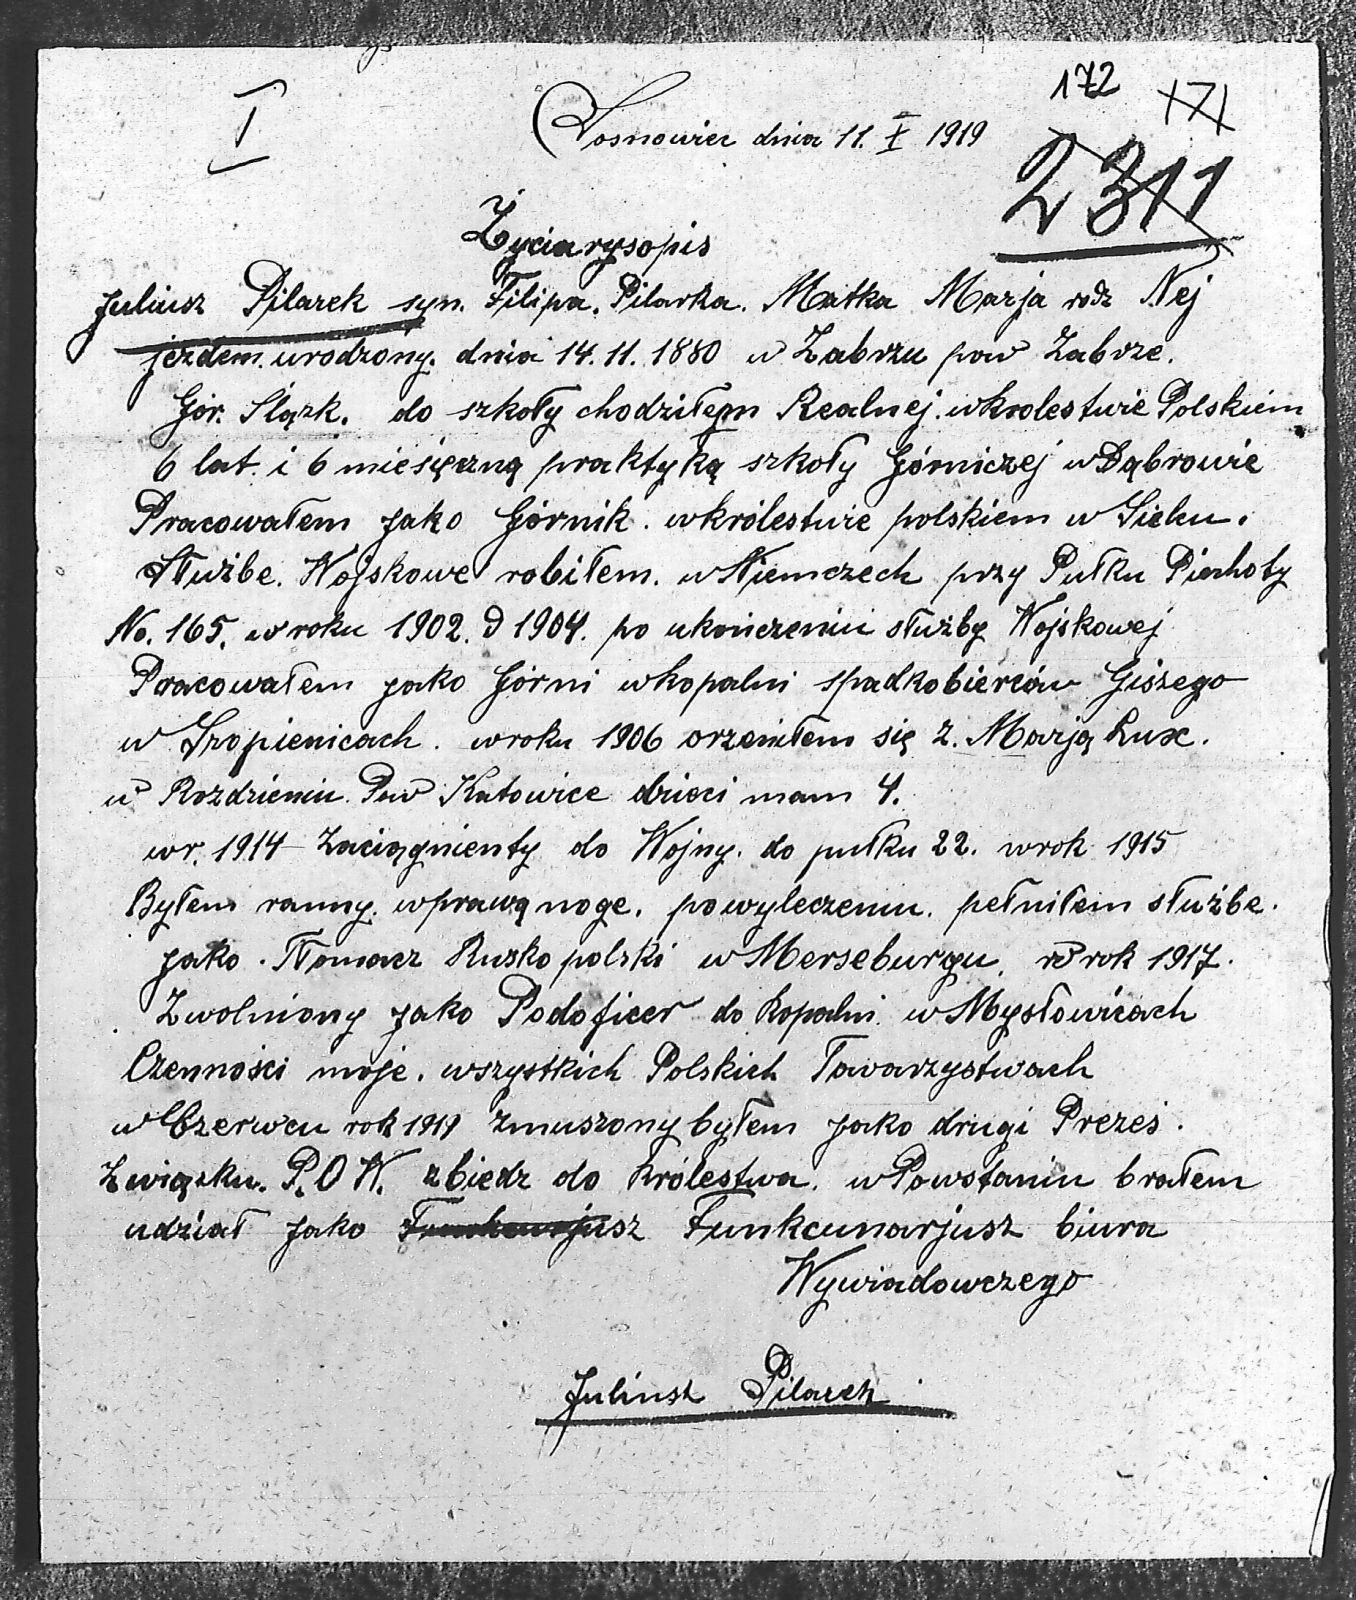 172 171
I
Sosnowiec dnia 11. X 1919
2311
Życiarysopis
Juliusz Pilarek syn. Filipa. Pilarka. Matka Marja rodz Nej
jezdem. urodzony. dnia 14. 11. 1880 w Zabrzu pow Zabrze.
Gór. Ślązk. do szkoły chodziłem Realnej. w krolestwie Polskiem
6 lat. i 6 miesięczną praktyką szkoły Górniczej w Dąbrowie
Pracowałem jako Górnik. w królestwie polskiem w Sielcu.
Służbe. Wojskowe robiłem. w Niemczech przy Pułku Piechoty
No. 165. w roku 1902. D 1904. po ukończeniu służby Wojskowej
Pracowałem jako Górni w kopalni spadkobierców Giszego
w Szopienicach. w roku 1906 orzeniłem się z. Marją Lux.
w Rozdzieniu. Pow Katowice dzieci mam 4.
w r. 1914 Zaciągnienty do Wojny. do pułku 22. w rok 1915
Byłem ranny. w prawą noge. po wyleczeniu. pełniłem służbe.
jako. Tłomacz Rusko polski w Merseburgu. w rok 1917.
Zwolniony jako Podoficer do Kopalni. w Mysłowicach
Czenności moje. wszystkich Polskich Towarzystwach
w Czerwcu rok 1919 zmuszony byłem jako drugi Prezes.
Związku. P.O.W. zbiedz do Królestwa. w Powstaniu brałem
udział jako Funkcunarjusz biura
Wywiadowczego
Juliusz Pilarek